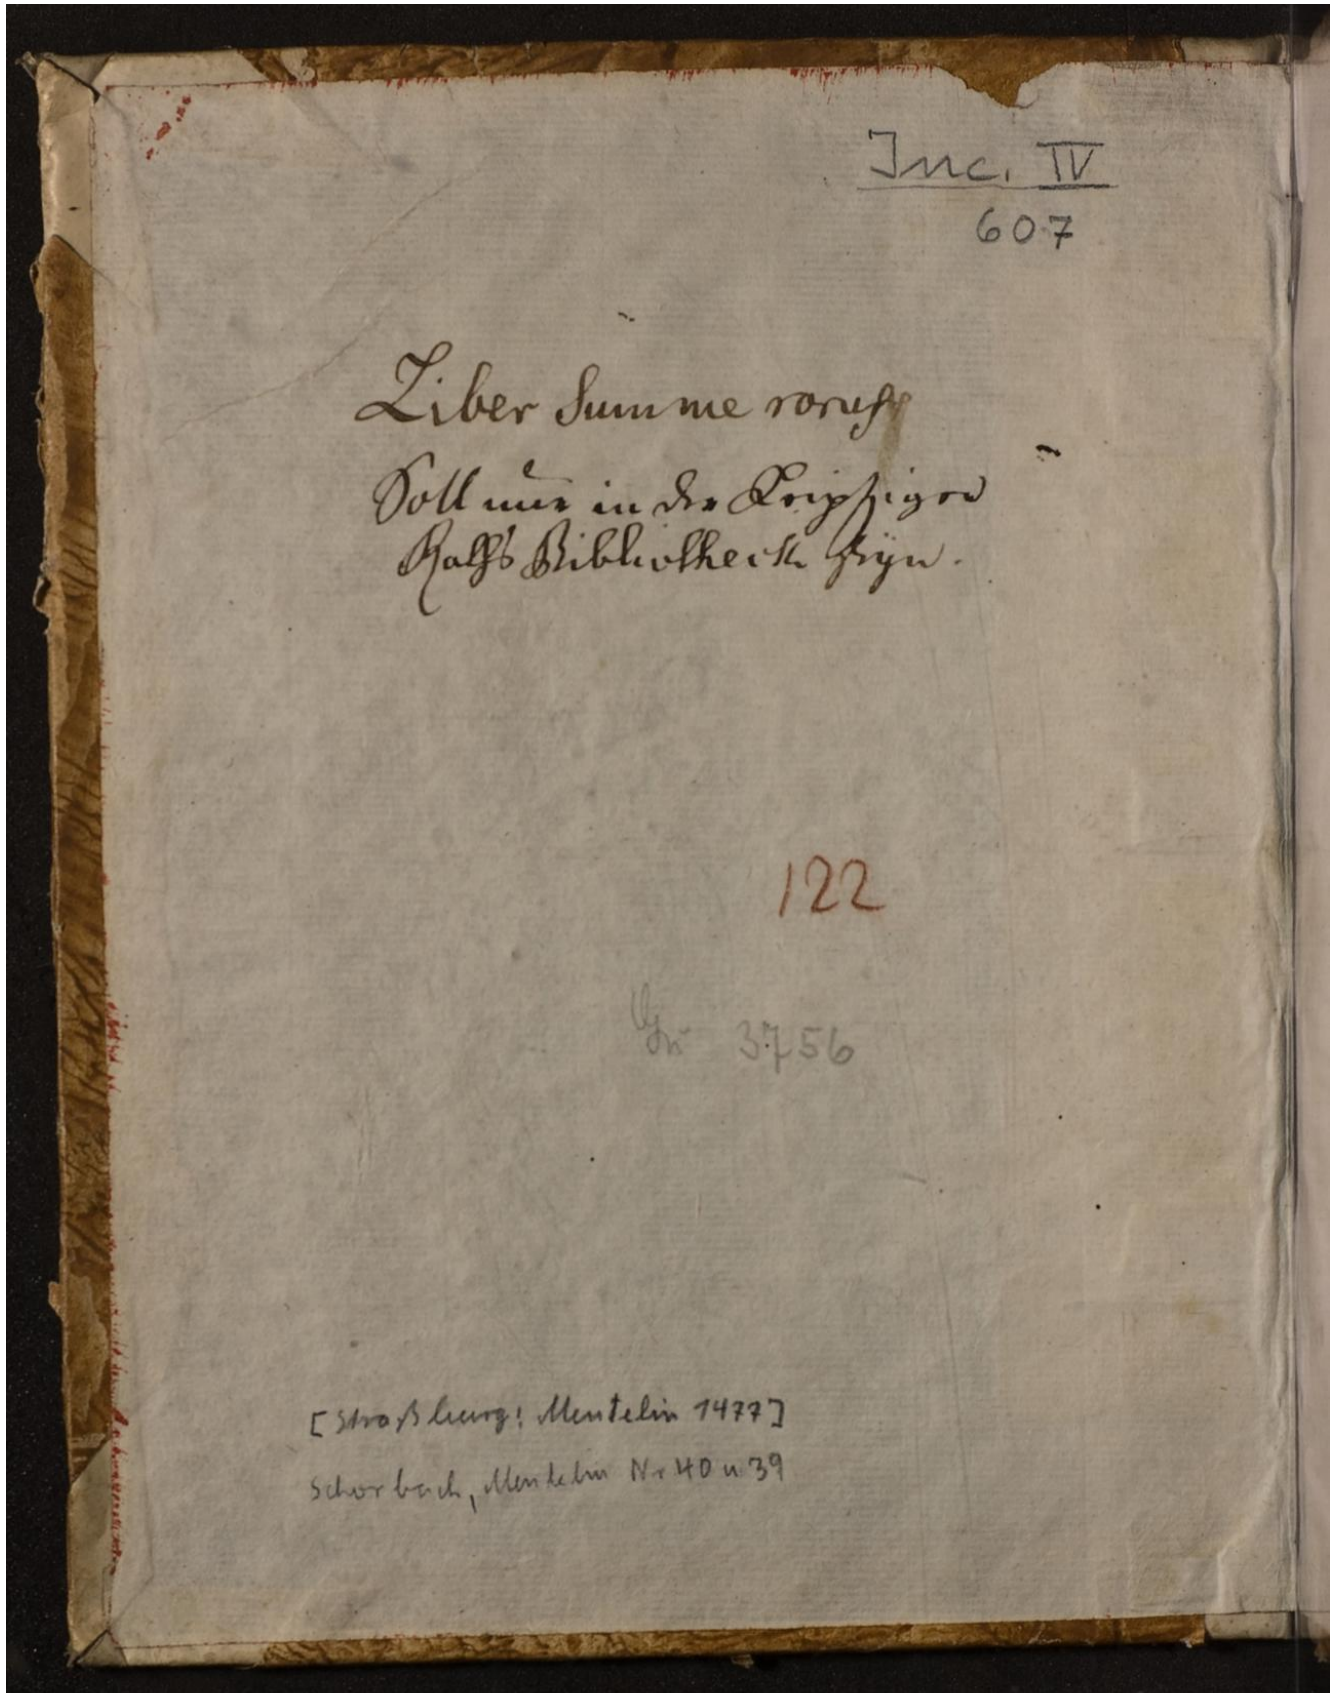 Inc. IV
607
Liber Summe rarus
Soll nur in der Leipziger
Raths Bibliotheck seyn.
122
3756
[Straßburg: Mentelin 1477]
Schorbach, Mentelin Nr 40 u 39